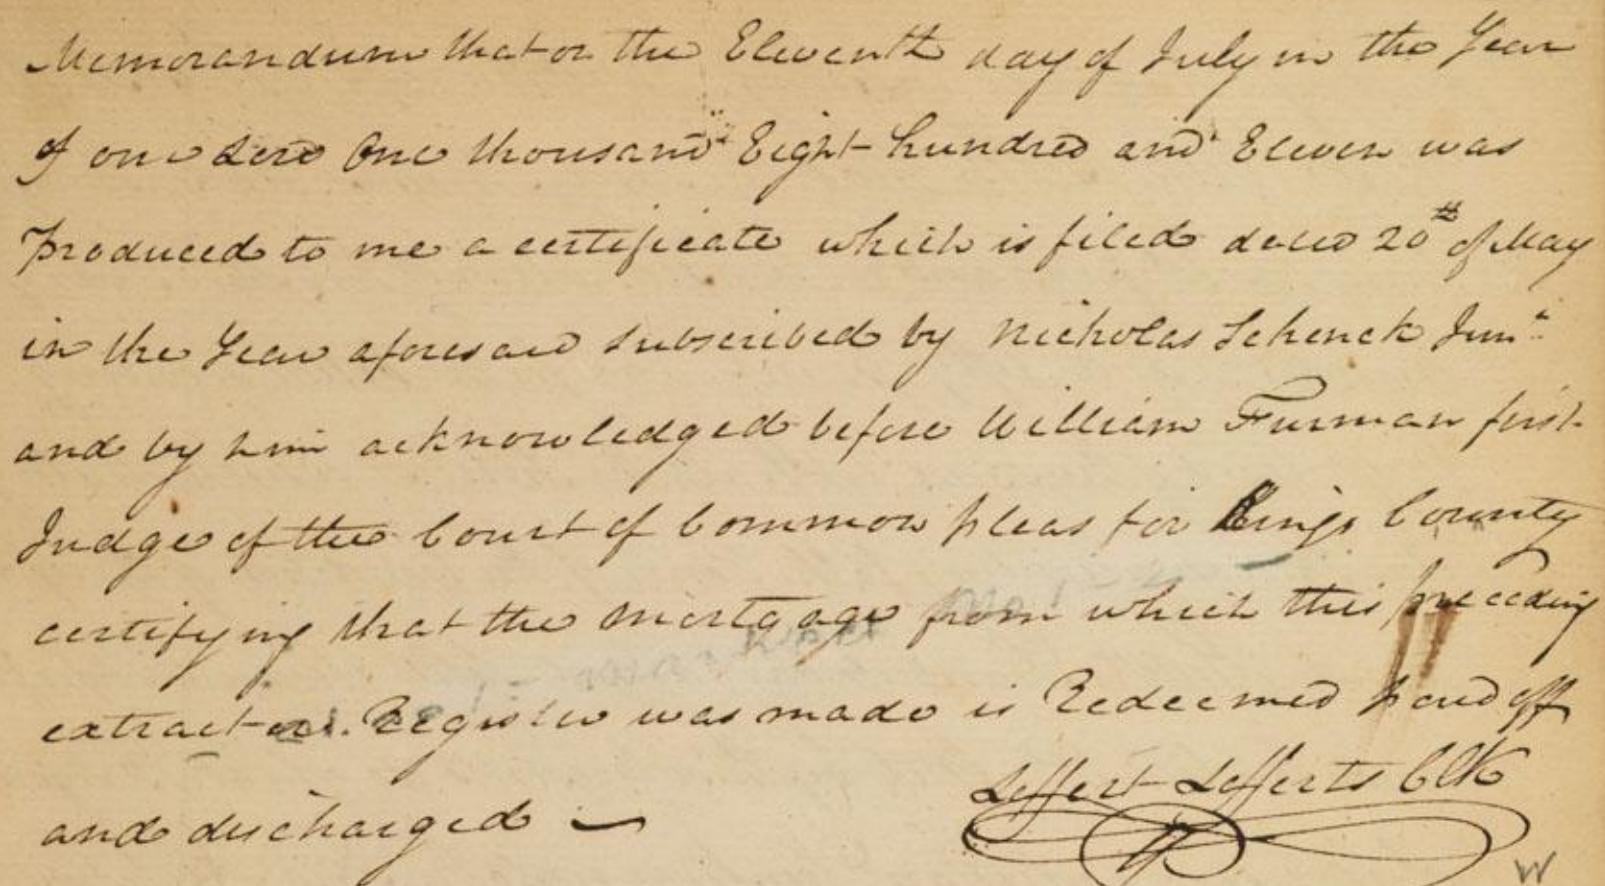 Memorandum that on the Eleventh day of July in the Year
of our Lord One thousand Eight hundred and Eleven was
produced to me a certificate which is filed dated 20th of May
in the Year aforesaid subscribed by Nicholas Schenck Junr
and by him acknowledged before William Furman first
Judge of the Court of Common pleas for Kings County
certifying that the mortgage from which this preceding
extract or Register was made is Redeemed paid off
and discharged
Leffert Lefferts Clk
W